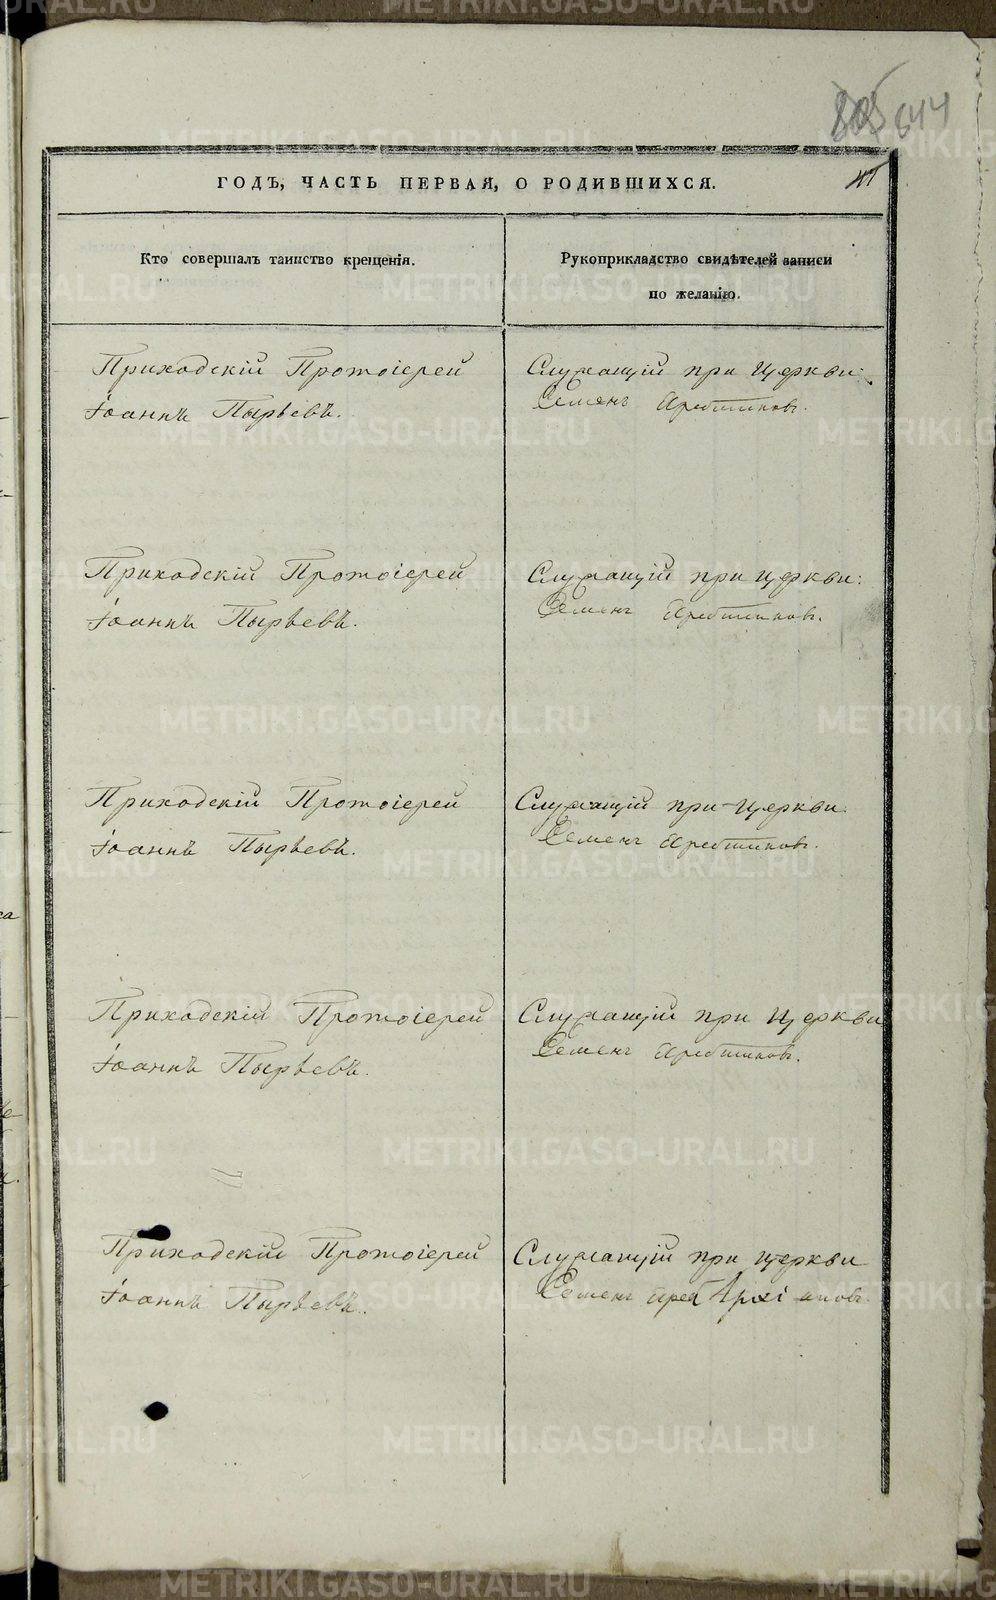 644
ГОДЪ, ЧАСТЬ ПЕРВАЯ, О РОДИВШИХСЯ.
Кто совершалъ таинство крещенія.
Рукоприкладство свидѣтелей записи
по желанію.
Приходскій Протоіерей
Іоаннъ Пырьевъ.
Служащій при Церкви:
Семенъ
Приходскій Протоіерей
Іоаннъ Пырьевъ.
Служащій при Церкви:
Семенъ
Приходскій Протоіерей
Іоаннъ Пырьевъ.
Служащій при Церкви
Семенъ
Приходскій Протоіерей
Іоаннъ Пырьевъ.
Служащій при Церкви
Семенъ
Приходскій Протоіерей
Іоаннъ Пырьевъ.
Служащій при Церкви
Семенъ
METRIKI.GASO-URAL.RU